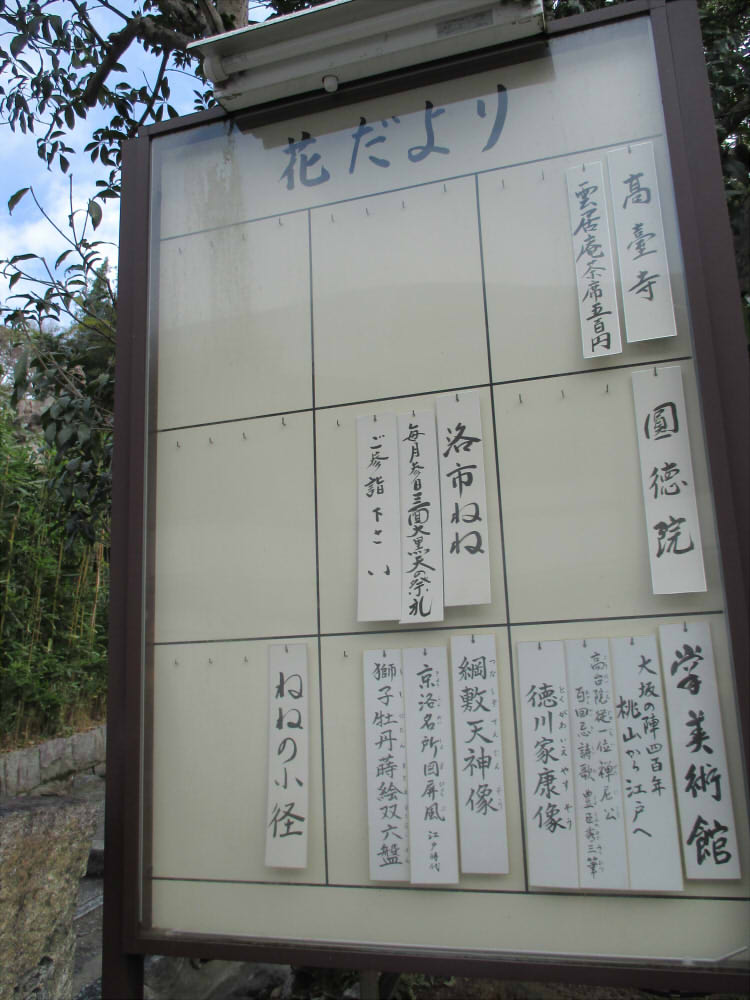 花だより
高臺寺
雲居庵茶席五百円
圓徳院
洛市ねね
毎月参日三面大黒天の祭礼
ご参詣下さい
掌美術館
大坂の陣四百年
桃山から江戸へ
高台院従一位禅尼公
百回忌詩歌 豊臣秀三筆
徳川家康像
とくがわいえやすぞう
綱敷天神像
つなしきてんじんぞう
京洛名所図屏風 江戸時代
獅子牡丹蒔絵双六盤
ねねの小径